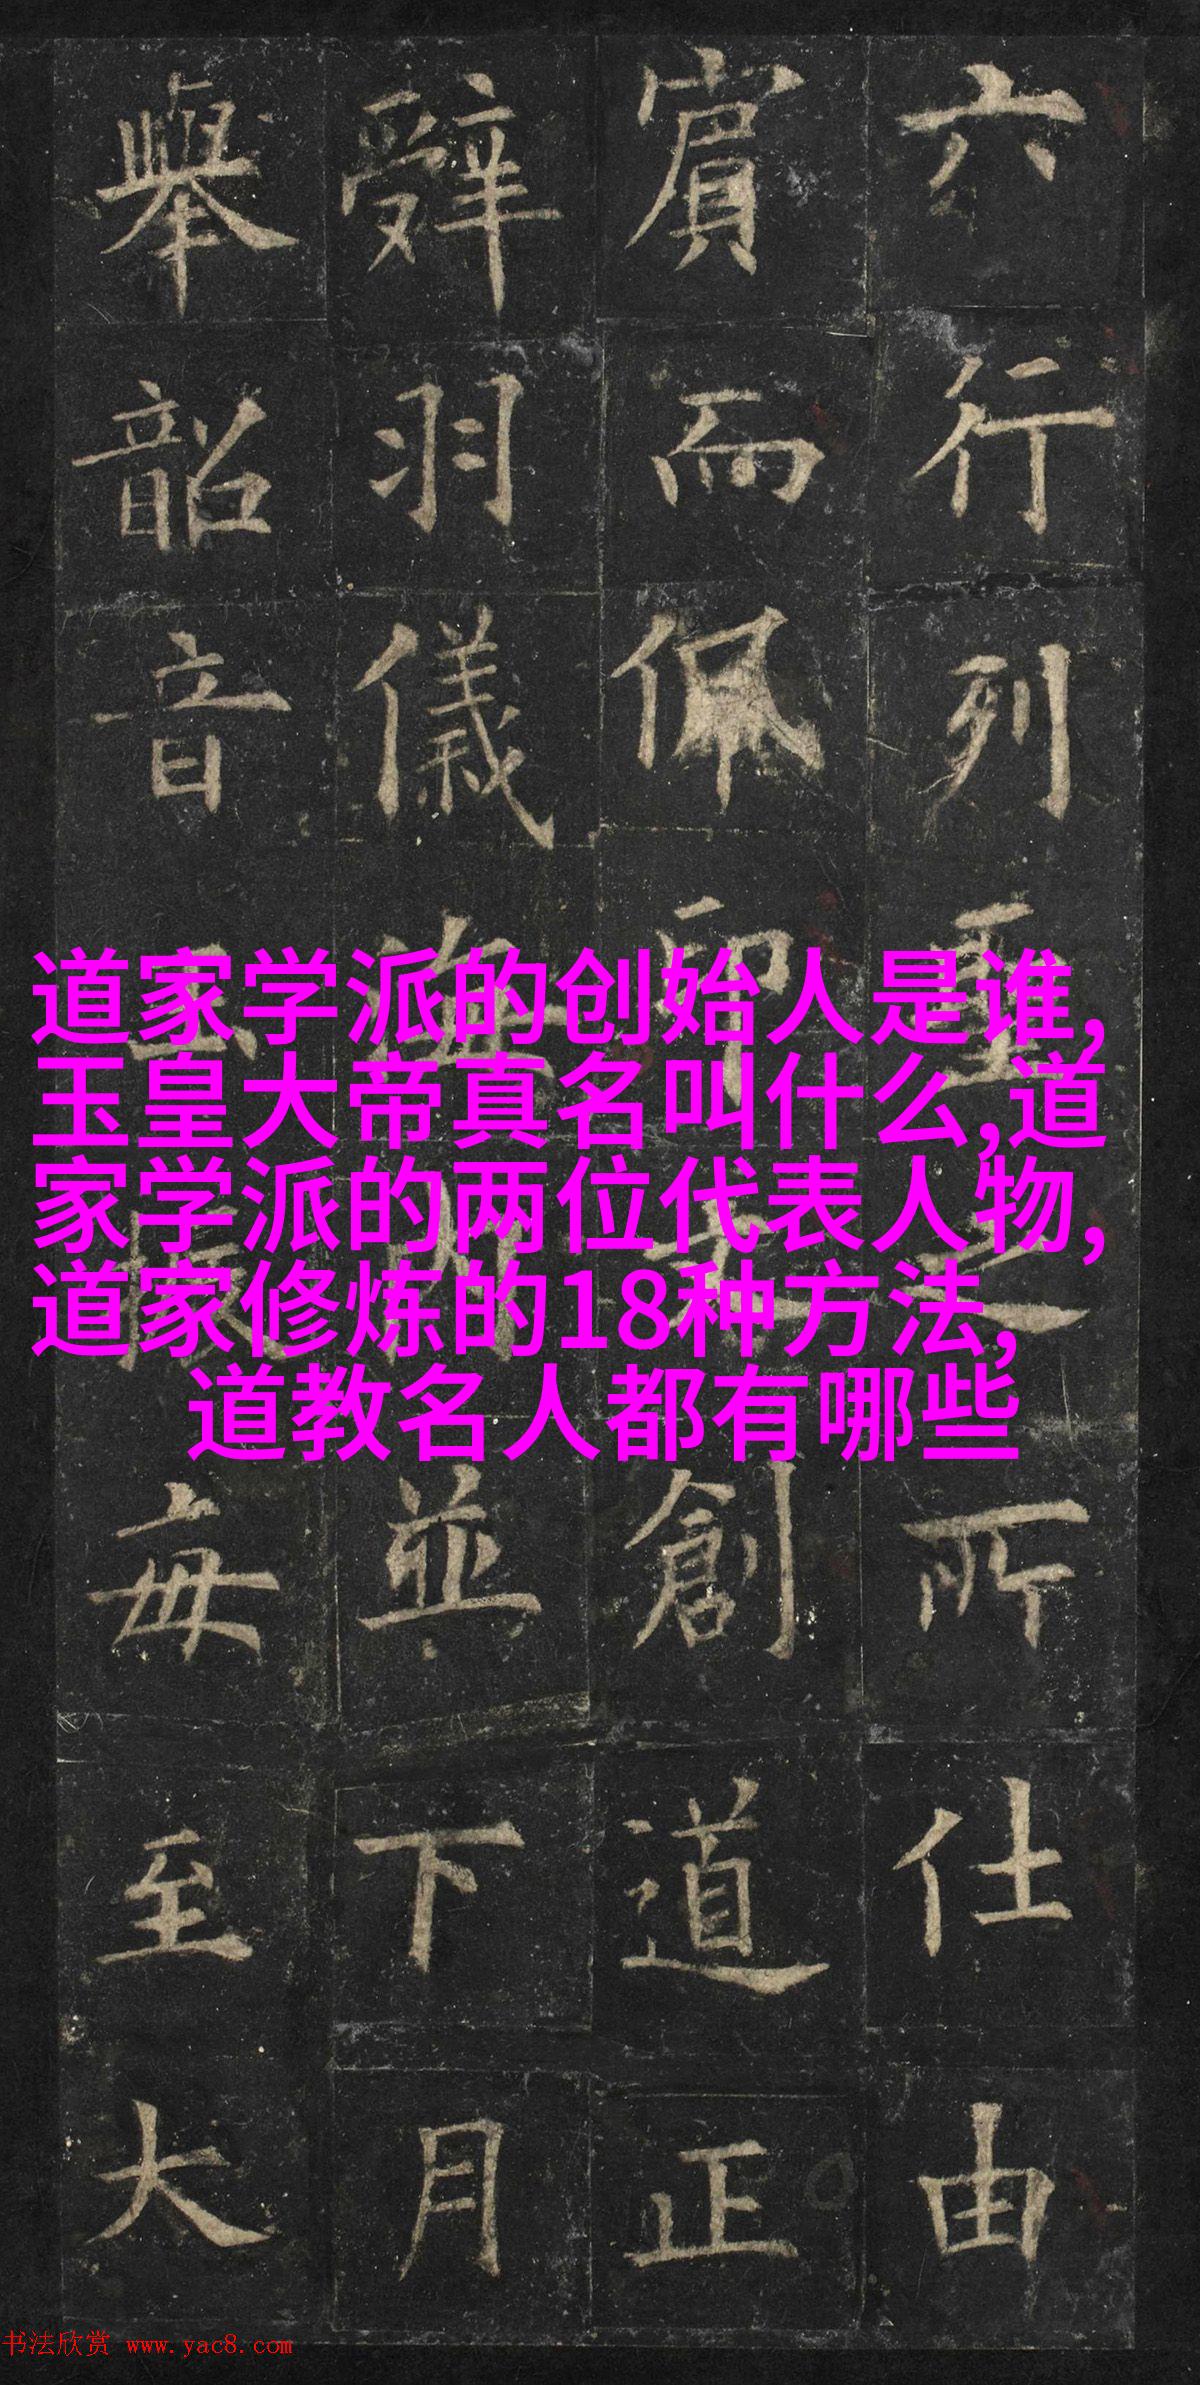 六行列聖之所仕由
賓而佩印創道正
辭羽儀並下月
舉韶音每至大
道家学派的创始人是谁,
玉皇大帝真名叫什么,道
家学派的两位代表人物,
道家修炼的18种方法,
道教名人都有哪些
书法欣赏 www.yac8.com